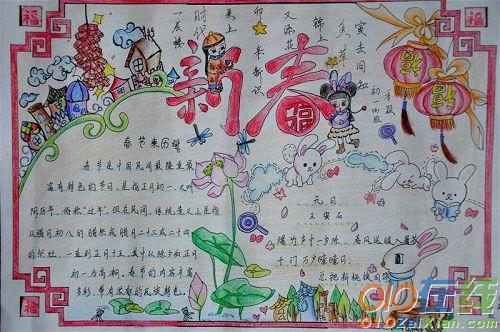 福
福
新春
福
春节来历
春节是中国民间最隆重最
富有特色的节日，是指正月初一，又叫
阴历年，俗称"过年"。但在民间，传统意义上是指
从腊月初八的腊祭或腊月二十三或二十四
的祭灶，一直到正月十五，其中以除夕和正月
初一为高潮。春节的内容丰富
多彩，带有浓郁的民族特色。
元日
王安石
爆竹声中一岁除，春风送暖入屠苏
千门万户曈曈日，
总把新桃换旧符
福
910在线
910zaixian.com